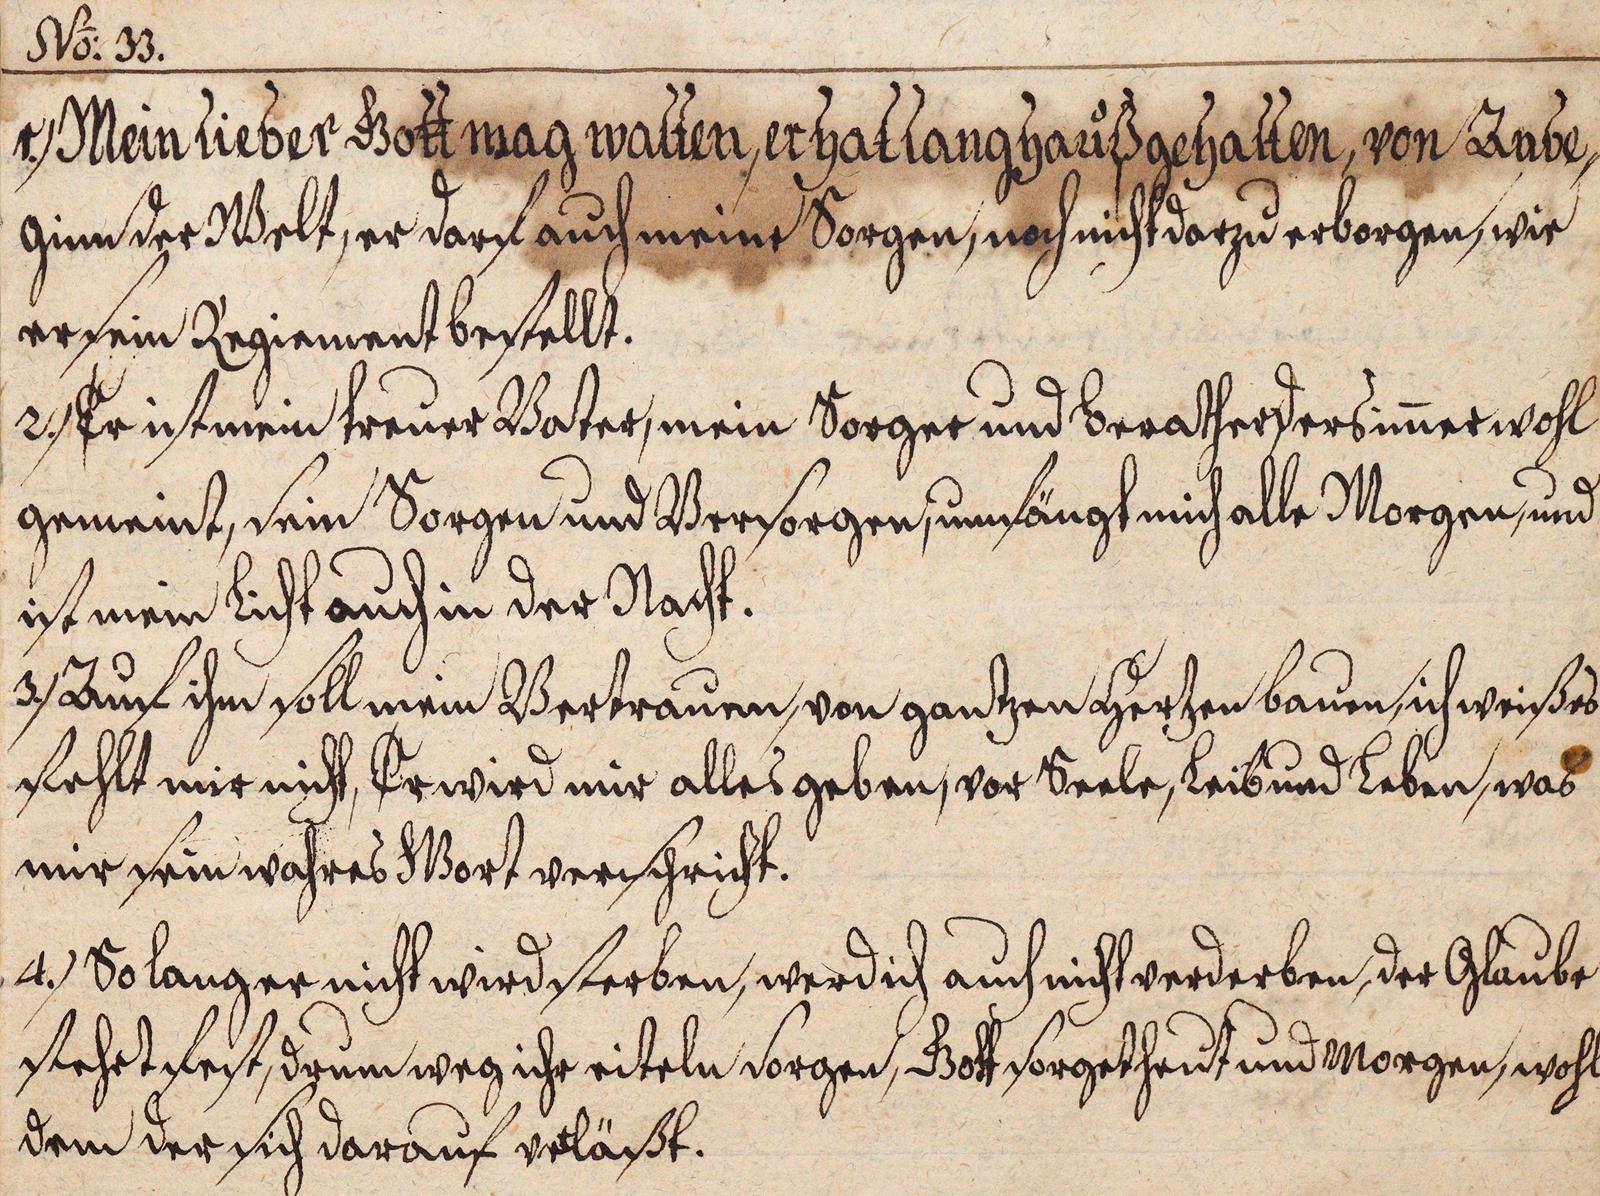 No: 33.
1.) Mein lieber Gott mag walten, er hat lang haußgehalten, von Anbe,
ginn der Welt, er darf auch meine Sorgen, noch nicht darzu erborgen, wie
er sein Regiement bestellt.
2.) Er ist mein treuer Vater, mein Sorger und berather, ders im̅er wohl
gemeint, sein Sorgen und Versorgen, umfängt mich alle Morgen, und
ist mein Licht auch in der Nacht.
3.) Auf ihm soll mein Vertrauen, von gantzen Hertzen bauen, ich weiß es
fehlt mir nicht, Er wird mir alles geben, vor Seele, Leib und Leben, was
mir sein wahres Wort verspricht.
4.) So lang er nicht wird sterben, werd ich auch nicht verderben, der Glaube
stehet fest, drum weg ihr eiteln sorgen, Gott sorget heut und Morgen, wohl
dem der sich darauf verläßt.